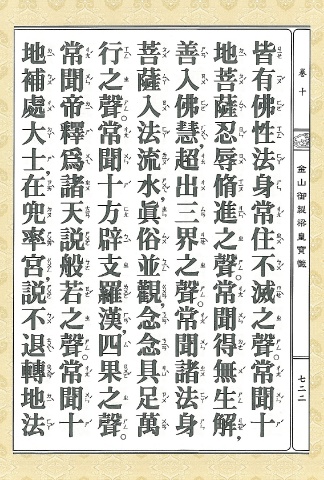 卷十
金山御製梁皇寶懺
七二二
皆有佛性法身常住不滅之聲。常聞十
地菩薩忍辱脩進之聲。常聞得無生解,
善入佛慧,超出三界之聲。常聞諸法身
菩薩入法流水,眞俗並觀,念念具足萬
行之聲。常聞十方辟支羅漢,四果之聲。
常聞帝釋爲諸天說般若之聲。常聞十
地補處大士,在兜率宮,說不退轉地法